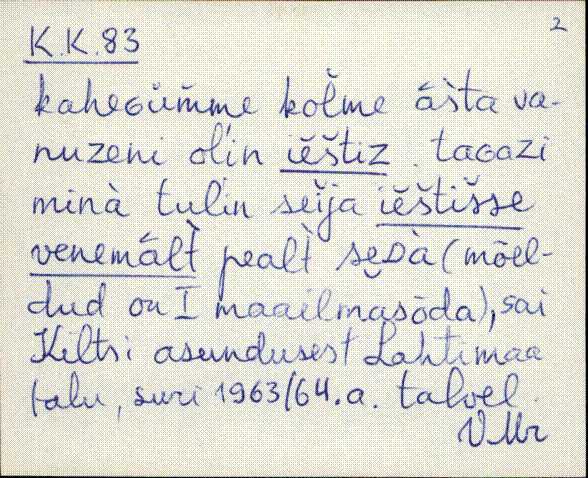 2
K.K.83
kaheɢümme kolme ašta va-
nuzeni olin iēštiz. taɢazi
minà tulin seija iēštišse
venemālt̀ pealt̀ sēᴅà (mõel-
dud on I maailmasõda), sai
Kiltsi asundusest Lahtimaa
talu, suri 1963/64.a. talvel.
VMr